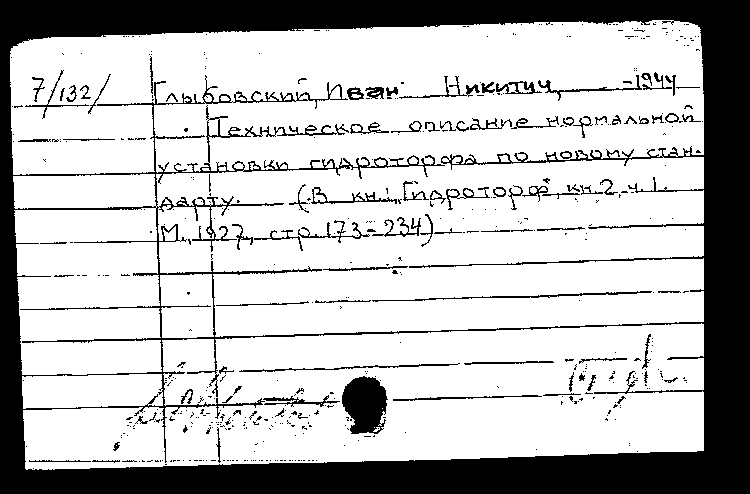 7/132/ Глыбовский, Иван Никитич, -1944
Техническое описание нормальной
установки гидроторфа по новому стан-
дарту. (В кн.: "Гидроторф", кн. 2, ч. 1.
М., 1927, стр. 173-234)